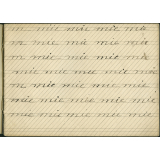 m mie mie mie mie
m mie mie mie mie
m mie mie mie mie
mie mie mie mie mie
m mie mie mie mie
mie mie mie mie mie
mie mie mie mie mie